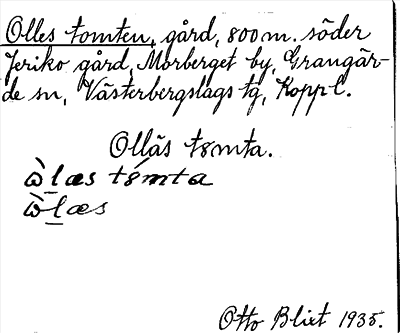 Olles tomten, gård, 800 m. söder
Jeriko gård, Morberget by, Grangär-
de sn, Västerbergslags tg, Koppl.
Olläs tomta.
ὼlæs tómta
ὼlæs
Otto Blixt 1935.